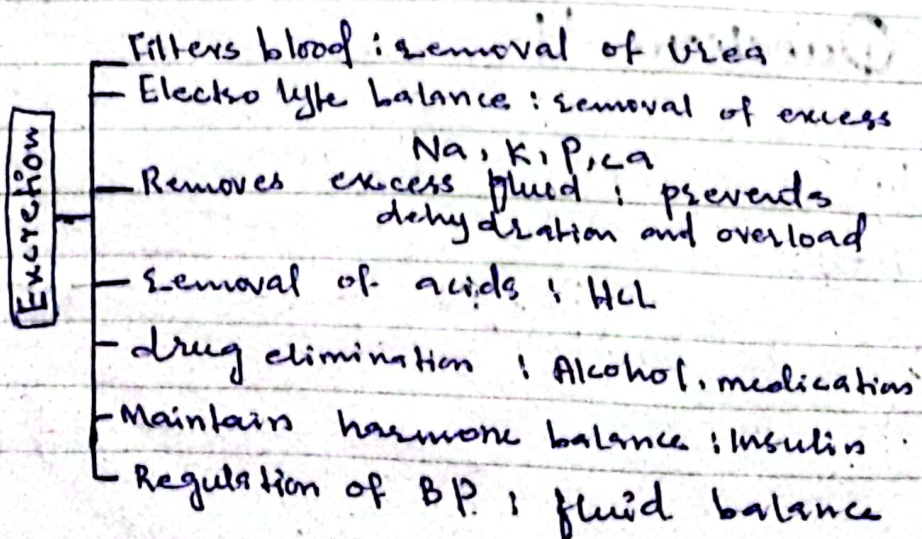 Excretion
Filters blood : removal of Urea
Electro lyte balance : removal of excess
Na, K, P, ca
Removes excess fluid : prevents
dehydration and overload
removal of acids : HCL
drug elimination : Alcohol, medications
Maintain harmone balance : Insulin
Regulation of BP : fluid balance